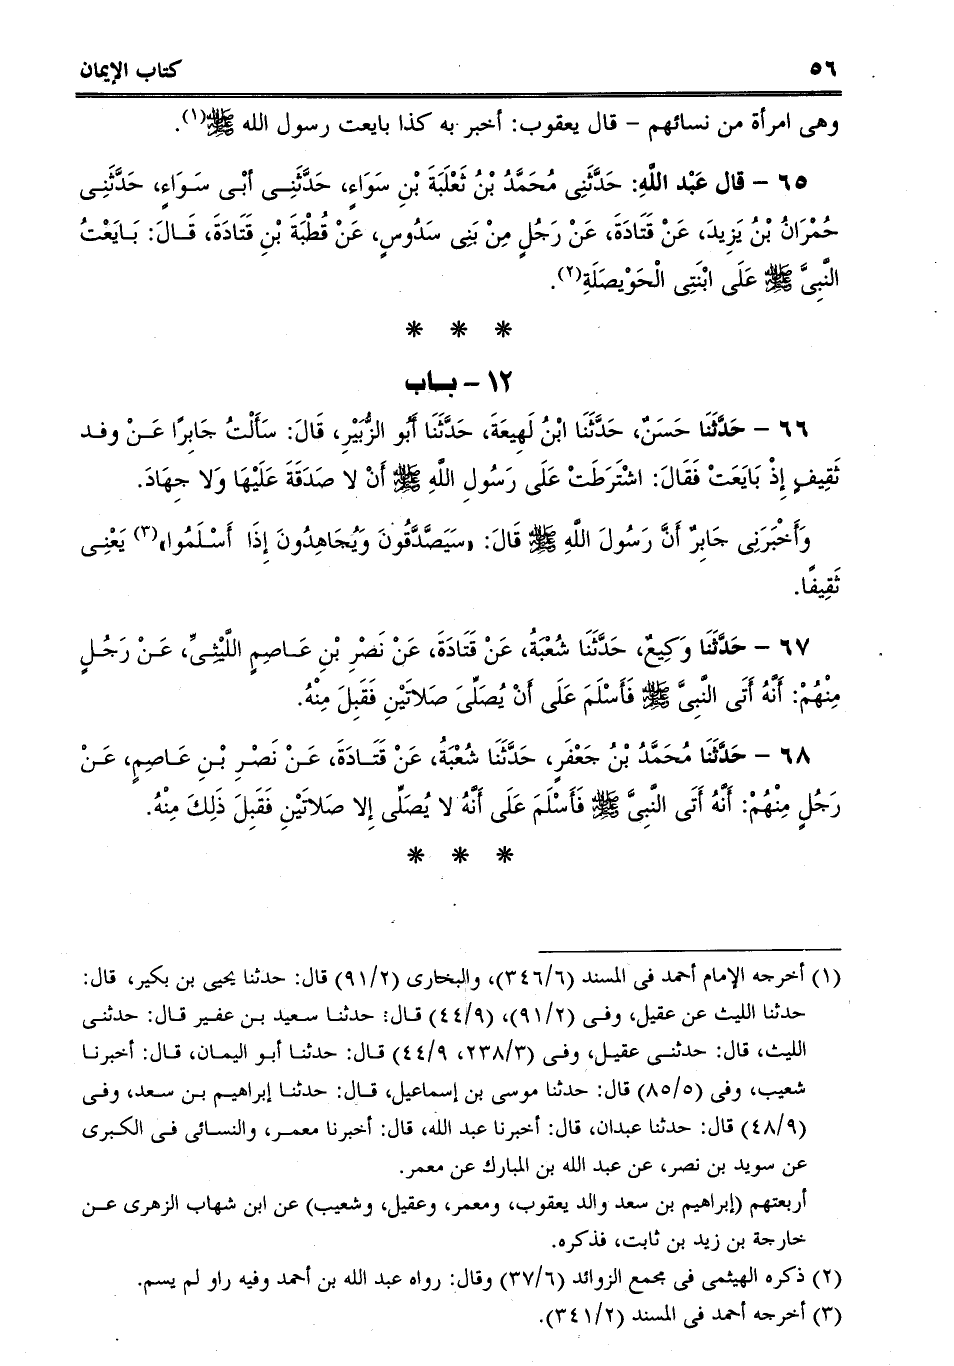 ٥٦ كتاب الإيمان
وهى امرأة من نسائهم – قال يعقوب: أخبر به كذا بايعت رسول الله ﷺ(١).
٦٥ – قال عَبْد اللَّهِ: حَدَّثَنِى مُحَمَّدُ بْنُ ثَعْلَبَةَ بْنِ سَوَاءٍ، حَدَّثَنِى أبْى سَوَاءٍ، حَدَّثَنِى
حُمْرَانُ بْنُ يَزِيدَ، عَنْ قَتَادَةَ، عَنْ رَجُلٍ مِنْ بَنِى سَدُوسٍ، عَنْ قُطْبَةَ بْنِ قَتَادَةَ، قَالَ: بَايَعْتُ
النَّبِىَّ ﷺ عَلَى ابْنَتِى الْحَوْيصَلَةِ(٢).
* * *
١٢ – باب
٦٦ – حَدَّثَنَا حَسَنٌ، حَدَّثَنَا ابْنُ لَهِيعَةَ، حَدَّثَنَا أَبُو الزُّبَيْرِ، قَالَ: سَأَلْتُ جَابِرًا عَنْ وفد
ثَقِيفٍ إِذْ بَايَعَتْ فَقَالَ: اشْتَرَطَتْ عَلَى رَسُولِ اللَّهِ ﷺ أَنْ لا صَدَقَةَ عَلَيْهَا وَلا جِهَادَ.
وَأَخْبَرَنِى جَابِرٌ أَنَّ رَسُولَ اللَّهِ ﷺ قَالَ: «سَيَصَّدَّقُونَ وَيُجَاهِدُونَ إِذَا أَسْلَمُوا»(٣) يَعْنِى
ثَقِيفًا.
٦٧ – حَدَّثَنَا وَكِيعٌ، حَدَّثَنَا شُعْبَةُ، عَنْ قَتَادَةَ، عَنْ نَصْرِ بْنِ عَاصِمٍ اللَّيْثِىِّ، عَنْ رَجُلٍ
مِنْهُمْ: أَنَّهُ أَتَى النَّبِىَّ ﷺ فَأَسْلَمَ عَلَى أَنْ يُصَلِّىَ صَلاتَيْنِ فَقَبِلَ مِنْهُ.
٦٨ – حَدَّثَنَا مُحَمَّدُ بْنُ جَعْفَرٍ، حَدَّثَنَا شُعْبَةُ، عَنْ قَتَادَةَ، عَنْ نَصْرِ بْنِ عَاصِمٍ، عَنْ
رَجُلٍ مِنْهُمْ: أَنَّهُ أَتَى النَّبِىَّ ﷺ فَأَسْلَمَ عَلَى أَنَّهُ لا يُصَلِّى إِلا صَلاتَيْنِ فَقَبِلَ ذَلِكَ مِنْهُ.
* * *
(١) أخرجه الإمام أحمد فى المسند (٣٤٦/٦)، والبخارى (٩١/٢) قال: حدثنا يحيى بن بكير، قال:
حدثنا الليث عن عقيل، وفى (٩١/٢)، (٤٤/٩) قال: حدثنا سعيد بن عفير قال: حدثنى
الليث، قال: حدثنى عقيل، وفى (٢٣٨/٣، ٤٤/٩) قال: حدثنا أبو اليمان، قال: أخبرنا
شعيب، وفى (٨٥/٥) قال: حدثنا موسى بن إسماعيل، قال: حدثنا إبراهيم بن سعد، وفى
(٤٨/٩) قال: حدثنا عبدان، قال: أخبرنا عبد الله، قال: أخبرنا معمر، والنسائى فى الكبرى
عن سويد بن نصر، عن عبد الله بن المبارك عن معمر.
أربعتهم (إبراهيم بن سعد والد يعقوب، ومعمر، وعقيل، وشعيب) عن ابن شهاب الزهرى عن
خارجة بن زيد بن ثابت، فذكره.
(٢) ذكره الهيثمى فى مجمع الزوائد (٣٧/٦) وقال: رواه عبد الله بن أحمد وفيه راو لم يسم.
(٣) أخرجه أحمد فى المسند (٣٤١/٢).